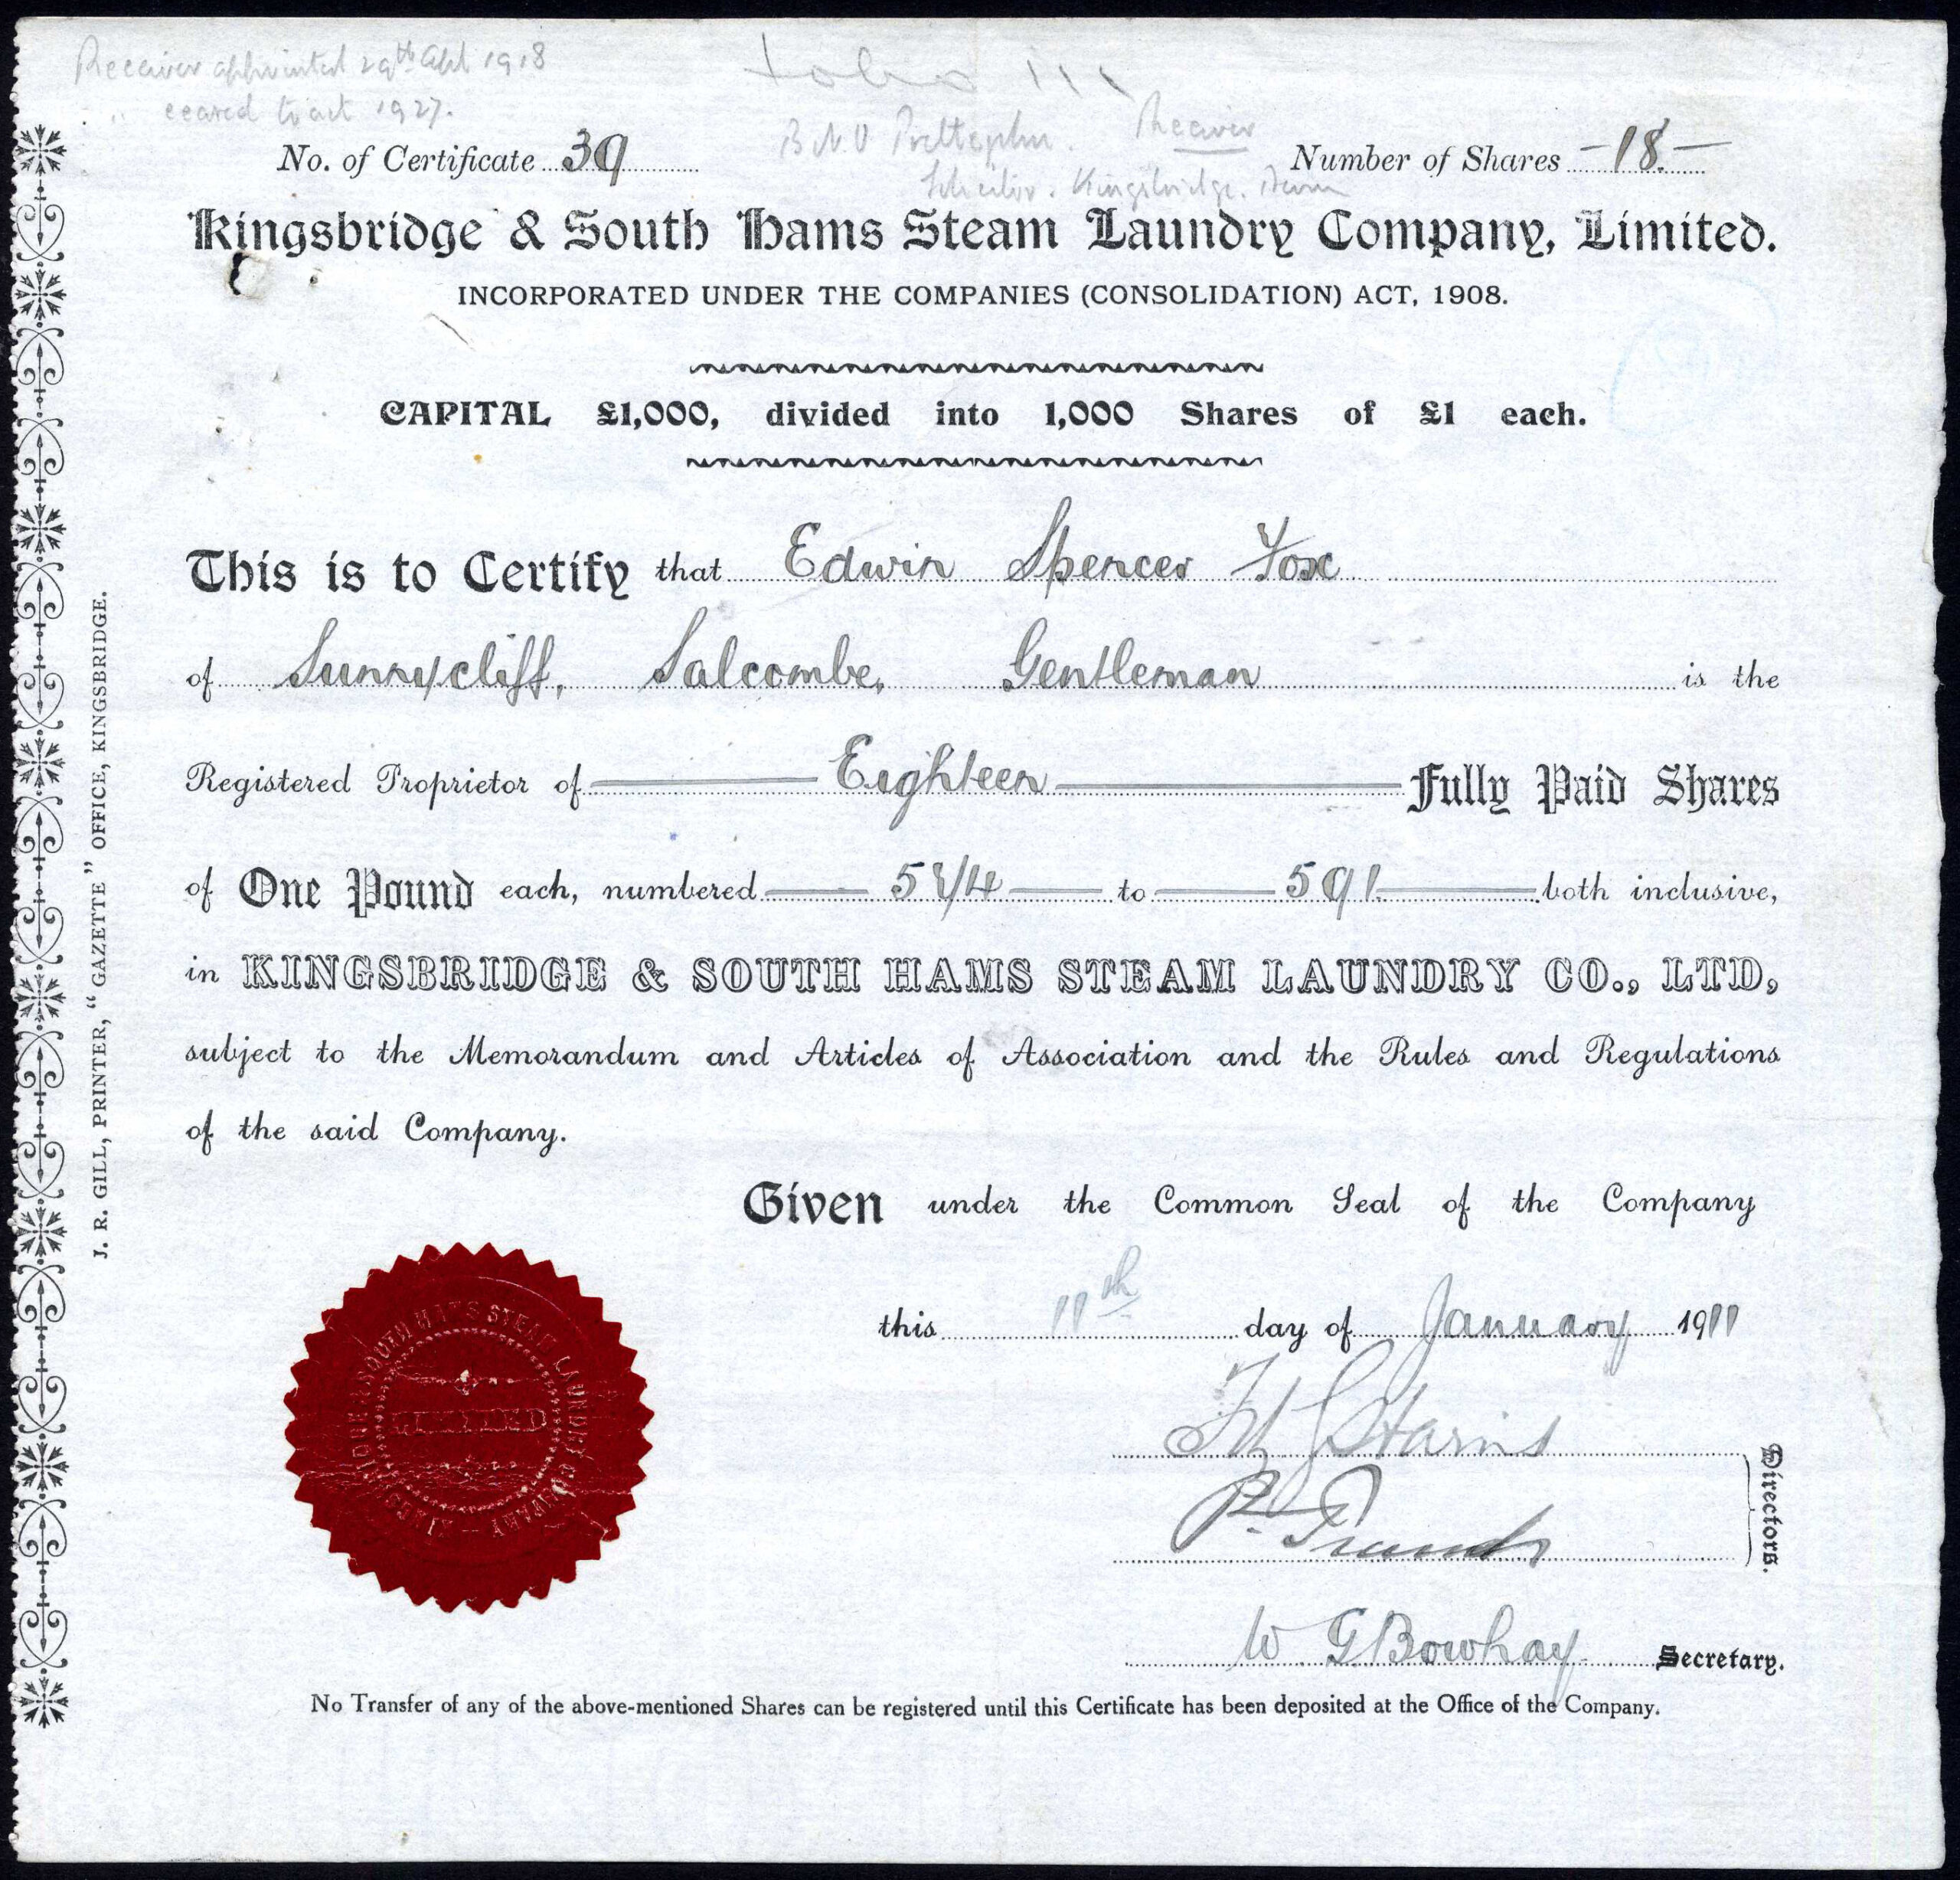 Receiver appointed 29th Apl 1918
" ceased to act 1927.
folio 111
Receiver
Kingsbridge. Devon
No. of Certificate 39
Number of Shares -18-
Kingsbridge & South Hams Steam Laundry Company, Limited.
INCORPORATED UNDER THE COMPANIES (CONSOLIDATION) ACT, 1908.
CAPITAL £1,000, divided into 1,000 Shares of £1 each.
This is to Certify that Edwin Spencer Fox
of Sunnycliff, Salcombe, Gentleman is the
Registered Proprietor of Eighteen Fully Paid Shares
of One Pound each, numbered 574 to 591 both inclusive,
in KINGSBRIDGE & SOUTH HAMS STEAM LAUNDRY CO., LTD,
subject to the Memorandum and Articles of Association and the Rules and Regulations
of the said Company.
Given under the Common Seal of the Company
this 11th day of January 1911
Directors.
W G Bowhay Secretary.
No Transfer of any of the above-mentioned Shares can be registered until this Certificate has been deposited at the Office of the Company.
J. R. GILL, PRINTER, "GAZETTE" OFFICE, KINGSBRIDGE.
KINGSBRIDGE & SOUTH HAMS STEAM LAUNDRY COMPANY
LIMITED